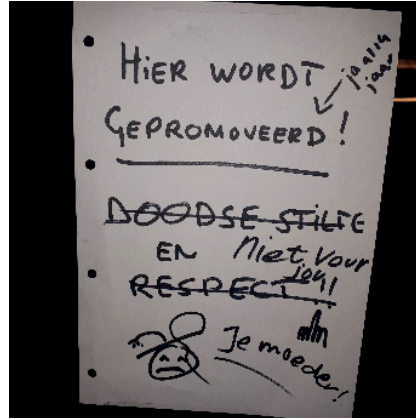 HIER WORDT
GEPROMOVEERD!
DOODSE STILTE
EN Niet voor
jou!
RESPECT
Je moeder!